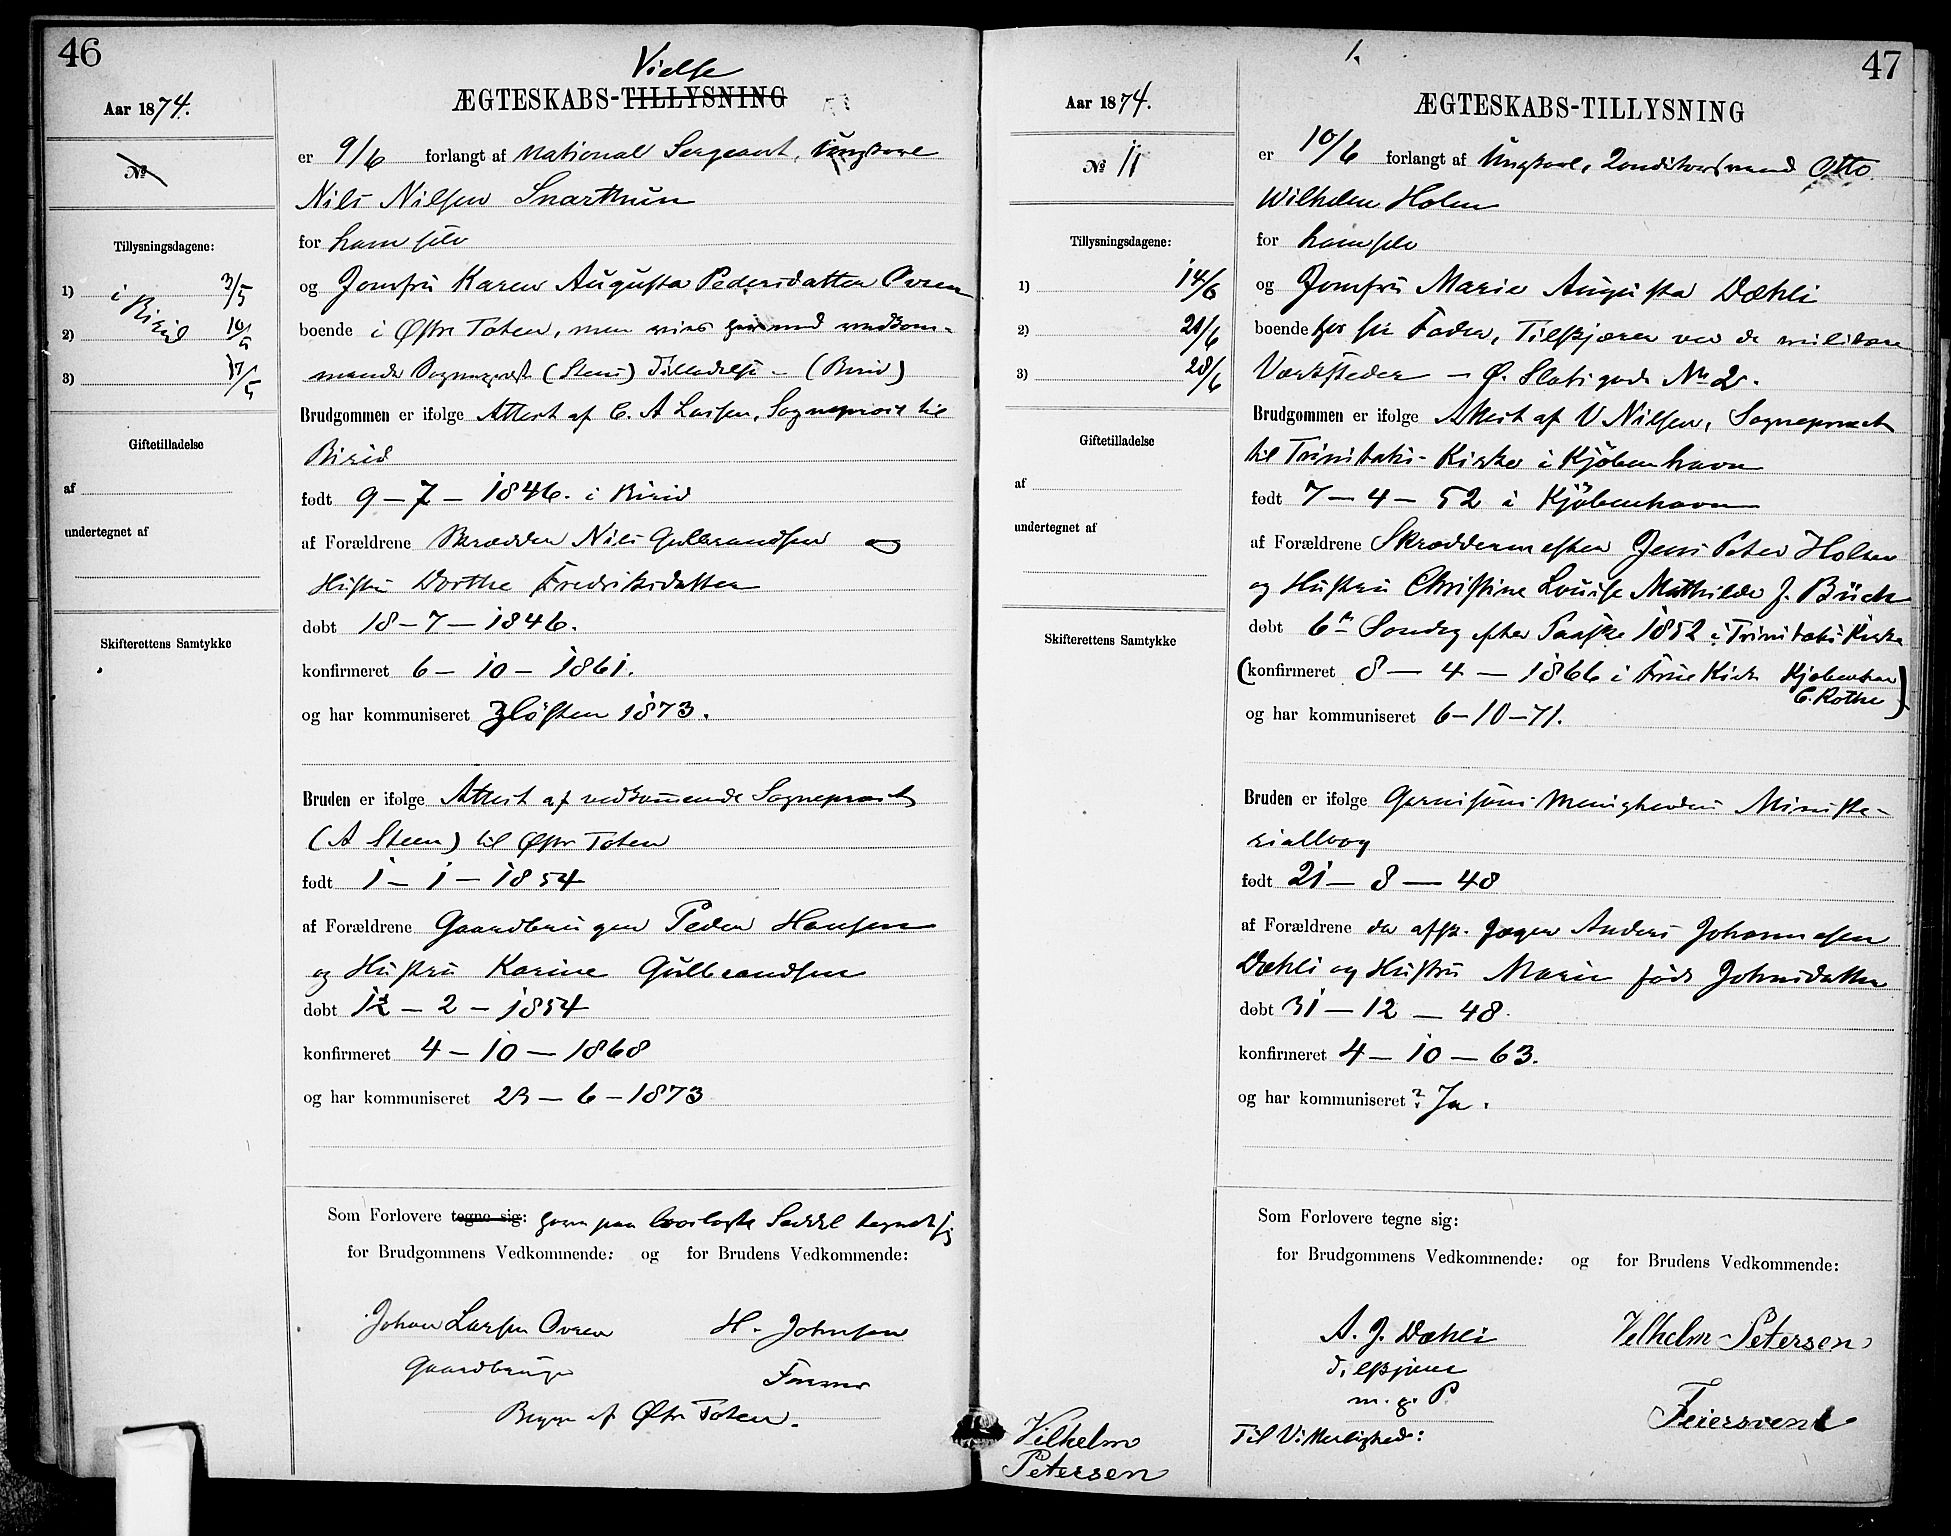 46
Aar 1874.
Vielse
ÆGTESKABS-TILLYSNING
No
er 9/6 forlangt af National Sergeant, Ungkarl
Nils Nilsen Snarthun
for ham selv
og Jomfru Karen Augusta Pedersdatter Ovren
boende i Østre Toten, men vies her med vedkom-
mende Sognepræst (Steens) Tilladelse - (Birid)
Tillysningsdagene:
1) i 3/5
2) Birid 10/5
3) 17/5
Giftetilladelse
af
undertegnet af
Skifterettens Samtykke
Brudgommen er ifølge Attest af C. A Larsen, Sognepræst til
Birid
født 9 - 7 - 1846. i Birid
af Forældrene Skrædder Nils Gulbrandsen og
Hustru Dorthe Fredriksdatter
døbt 18 - 7 - 1846.
konfirmeret 6 - 10 - 1861.
og har kommuniseret Høsten 1873.
Bruden er ifølge Attest af vedkommende Sognepræst
(A Steen) til Østre Toten
født 1 - 1 - 1854
af Forældrene Gaardbruger Peder Hansen
og Hustru Karine Gulbrandsen
døbt 12 - 2 - 1854
konfirmeret 4 - 10 - 1868
og har kommuniseret 23 - 6 - 1873
Som Forlovere tegne sig: have paa hoslagte Seddel tegnet sig
for Brudgommens Vedkommende: og for Brudens Vedkommende:
Johan Larsen Ovren H. Johnsen
Gaardbruger
Begge af Østre Toten.
47
Aar 1874.
1.
ÆGTESKABS-TILLYSNING
No 11
er 10/6 forlangt af Ungkarl, Konditorsvend Otto
Wilhelm Holm
for ham selv
og Jomfru Marie Augusta Dæhli
boende hos sin Fader, Tilskjærer ved de militære
Værksteder - Ø. Slotsgade No 2.
Tillysningsdagene:
1) 14/6
2) 21/6
3) 28/6
Giftetilladelse
af
undertegnet af
Skifterettens Samtykke
Brudgommen er ifølge Attest af V. Nilsen, Sognepræst
til Trinitatis-Kirke i Kjøbenhavn
født 7 - 4 - 52 i Kjøbenhavn
af Forældrene Skræddermester Jens Peter Holm
og Hustru Christine Louise Mathilde f. Bück
døbt 6te Søndag efter Paaske 1852 i Trinitatis Kirke
(konfirmeret 8 - 4 - 1866 i Frue Kirke Kjøbenhavn
C. Rothe)
og har kommuniseret 6-10-71.
Bruden er ifølge Garnisons Menighedens Ministe-
rialbog
født 21 - 8 - 48
af Forældrene da afsk. Jæger Anders Johannesen
Dæhli og Hustru Marie født Johnsdatter
døbt 31 - 12 - 48.
konfirmeret 4 - 10 - 63.
og har kommuniseret? Ja.
Som Forlovere tegne sig:
for Brudgommens Vedkommende: og for Brudens Vedkommende:
A. J. Dæhli Vilhelm Petersen
Tilskjærer
m. p. P. Feiersvend
Til Vitterlighed:
Vilhelm
Petersen